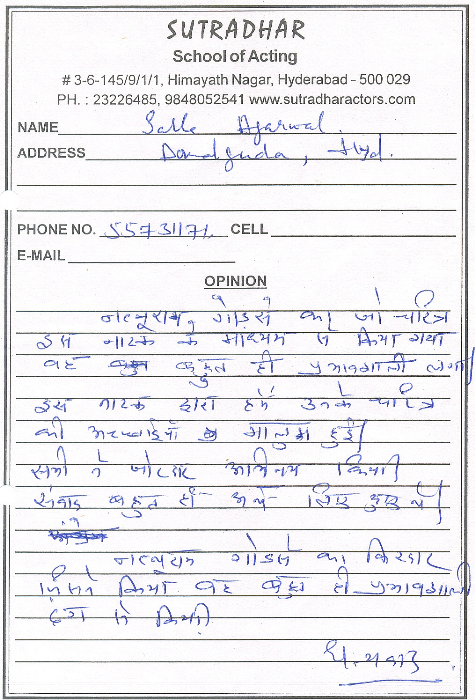 SUTRADHAR
School of Acting
# 3-6-145/9/1/1, Himayath Nagar, Hyderabad - 500 029
PH. : 23226485, 9848052541 www.sutradharactors.com
NAME Agarwal
ADDRESS Domalguda, Hyd.
PHONE NO. 55731171 CELL
E-MAIL
OPINION
नत्थूराम गोडसे का जो चरित्र
इस नाटक के माध्यम से किया गया
वह बहुत ही प्रभावशाली लगा
इस नाटक द्वारा हमें उनके चरित्र
की अच्छाईयाँ मालुम हुई।
सभी ने जोरदार अभिनय किया।
संवाद बहुत ही लिए हुए थे।
नत्थूराम गोडसे का किरदार
जिसने किया वह बहुत ही प्रभावशाली
ढंग से किया
धन्यवाद